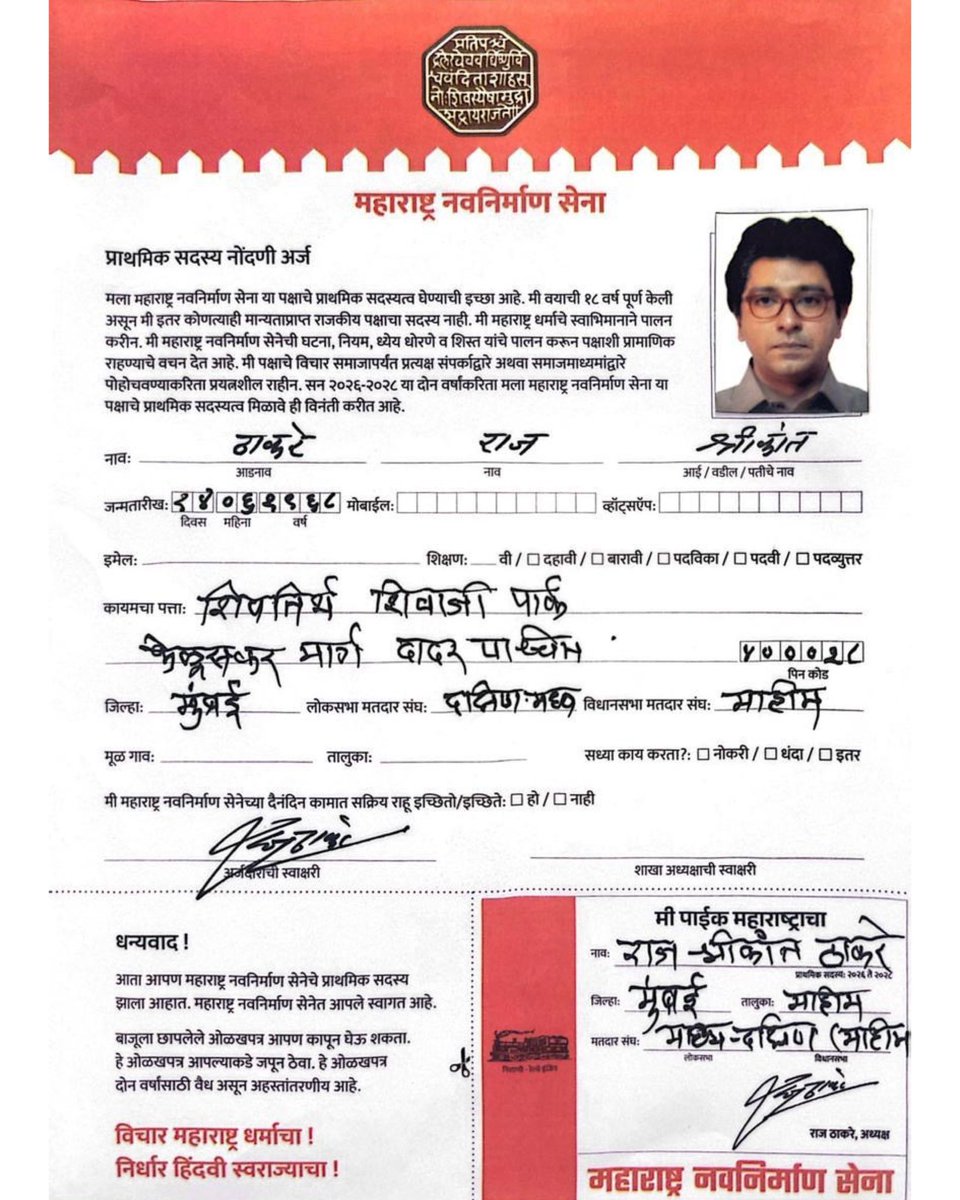 महाराष्ट्र नवनिर्माण सेना
प्राथमिक सदस्य नोंदणी अर्ज
मला महाराष्ट्र नवनिर्माण सेना या पक्षाचे प्राथमिक सदस्यत्व घेण्याची इच्छा आहे. मी वयाची १८ वर्ष पूर्ण केली
असून मी इतर कोणत्याही मान्यताप्राप्त राजकीय पक्षाचा सदस्य नाही. मी महाराष्ट्र धर्माचे स्वाभिमानाने पालन
करीन. मी महाराष्ट्र नवनिर्माण सेनेची घटना, नियम, ध्येय धोरणे व शिस्त यांचे पालन करून पक्षाशी प्रामाणिक
राहण्याचे वचन देत आहे. मी पक्षाचे विचार समाजापर्यंत प्रत्यक्ष संपर्काद्वारे अथवा समाजमाध्यमांद्वारे
पोहोचवण्याकरिता प्रयत्नशील राहीन. सन २०२६-२०२८ या दोन वर्षांकरिता मला महाराष्ट्र नवनिर्माण सेना या
पक्षाचे प्राथमिक सदस्यत्व मिळावे ही विनंती करीत आहे.
नाव: ठाकरे राज श्रीकांत
आडनाव नाव आई / वडील / पतीचे नाव
जन्मतारीख: १४०६१९६८ मोबाईल: व्हॉट्सऍप:
दिवस महिना वर्ष
इमेल: शिक्षण: वी / दहावी / बारावी / पदविका / पदवी / पदव्युत्तर
कायमचा पत्ता: शिवतिर्थ शिवाजी पार्क
केळूसकर मार्ग दादर पश्चिम ४०००२८
पिन कोड
जिल्हा: मुंबई लोकसभा मतदार संघ: दक्षिण-मध्य विधानसभा मतदार संघ: माहीम
मूळ गाव: तालुका: सध्या काय करता?: नोकरी / धंदा / इतर
मी महाराष्ट्र नवनिर्माण सेनेच्या दैनंदिन कामात सक्रिय राहू इच्छितो/इच्छिते: हो / नाही
अर्जदाराची स्वाक्षरी शाखा अध्यक्षाची स्वाक्षरी
धन्यवाद !
आता आपण महाराष्ट्र नवनिर्माण सेनेचे प्राथमिक सदस्य
झाला आहात. महाराष्ट्र नवनिर्माण सेनेत आपले स्वागत आहे.
बाजूला छापलेले ओळखपत्र आपण कापून घेऊ शकता.
हे ओळखपत्र आपल्याकडे जपून ठेवा. हे ओळखपत्र
दोन वर्षांसाठी वैध असून अहस्तांतरणीय आहे.
विचार महाराष्ट्र धर्माचा !
निर्धार हिंदवी स्वराज्याचा !
निशाणी - रेल्वे इंजिन
मी पाईक महाराष्ट्राचा
नाव: राज श्रीकांत ठाकरे
प्राथमिक सदस्य: २०२६ ते २०२८
जिल्हा: मुंबई तालुका: माहीम
मतदार संघ: मध्य-दक्षिण (माहीम
लोकसभा विधानसभा
राज ठाकरे, अध्यक्ष
महाराष्ट्र नवनिर्माण सेना